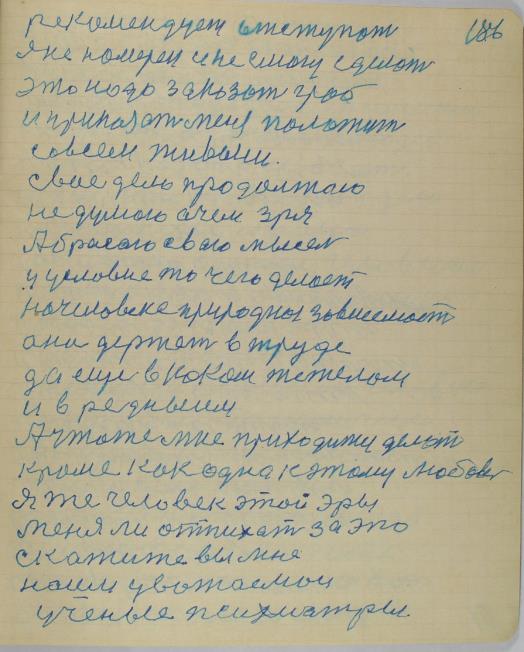 186
рекомендует отступот
я не номерен и не смогу сделот
это надо заказот гроб
и приказат меня положит
совсем живыи.
свое дело продолжаю
не думою очем зря
А бросаю сваю мысел
и условие то чего делоет
на человеке природноя зовисемост
они держет в труде
да еще в коком тежелом
и в
А что же мне делот
кроме как одна к этому любов
я же человек этой эры
меня ли отпихат за это
скожите вы мне
ноши увожаемои
ученые психиатры